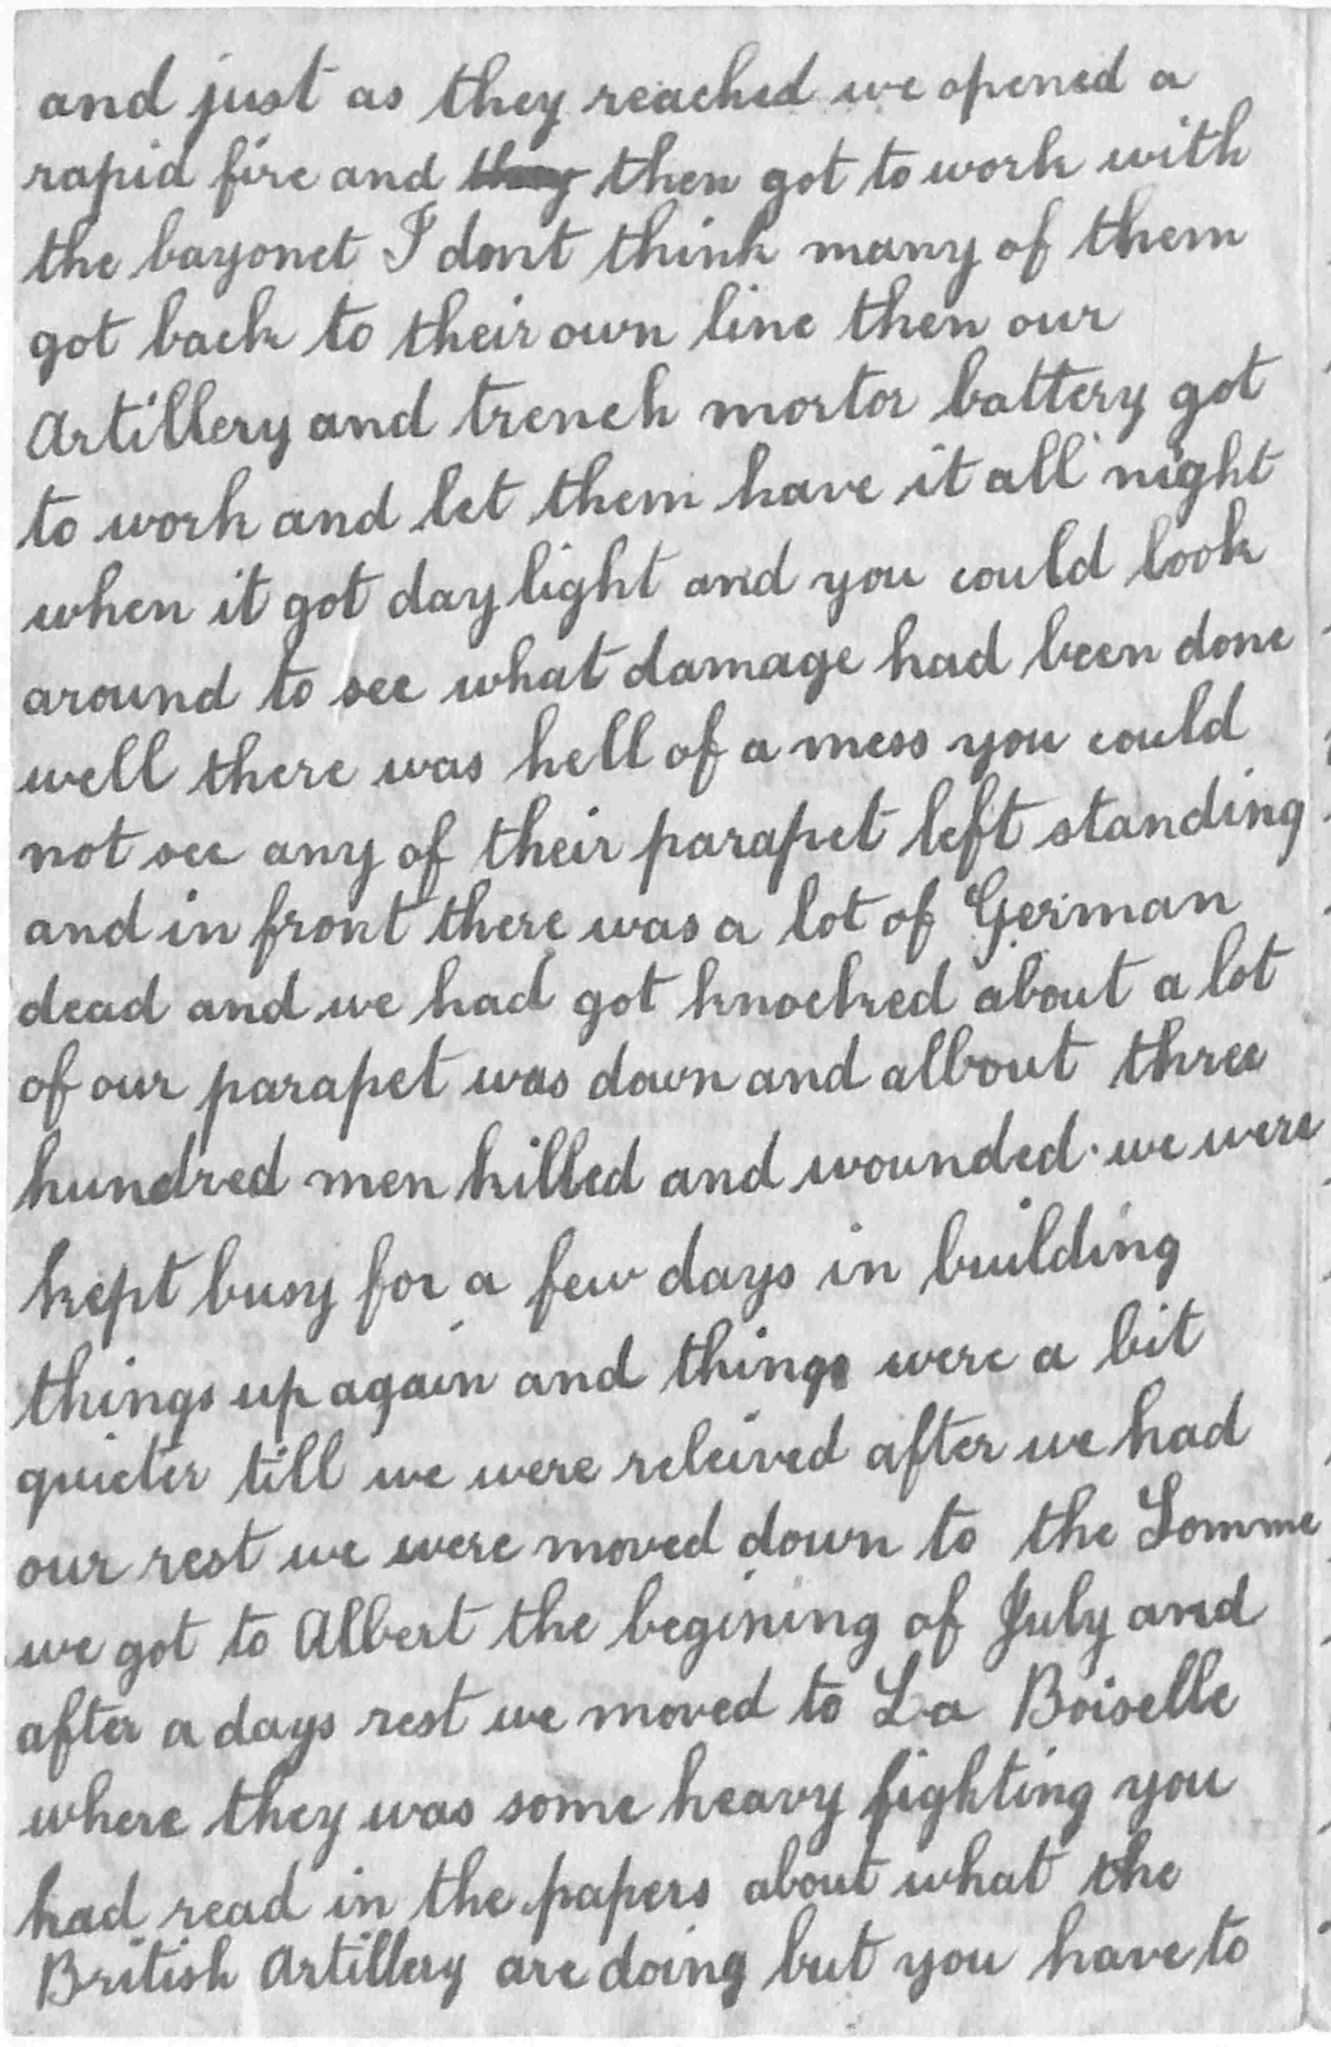 and just as they reached we opened a
rapid fire and ~~they~~ then got to work with
the bayonet I dont think many of them
got back to their own line then our
Artillery and trench mortor battery got
to work and let them have it all night
when it got day light and you could look
around to see what damage had been done
well there was hell of a mess you could
not see any of their parapet left standing
and in front there was a lot of German
dead and we had got knocked about a lot
of our parapet was down and allbout three
hundred men killed and wounded. we were
kept busy for a few days in building
things up again and things were a bit
quieter till we were releived after we had
our rest we were moved down to the Somme
we got to Albert the begining of July and
after a days rest we moved to La Boiselle
where they was some heavy fighting you
had read in the papers about what the
British Artillery are doing but you have to